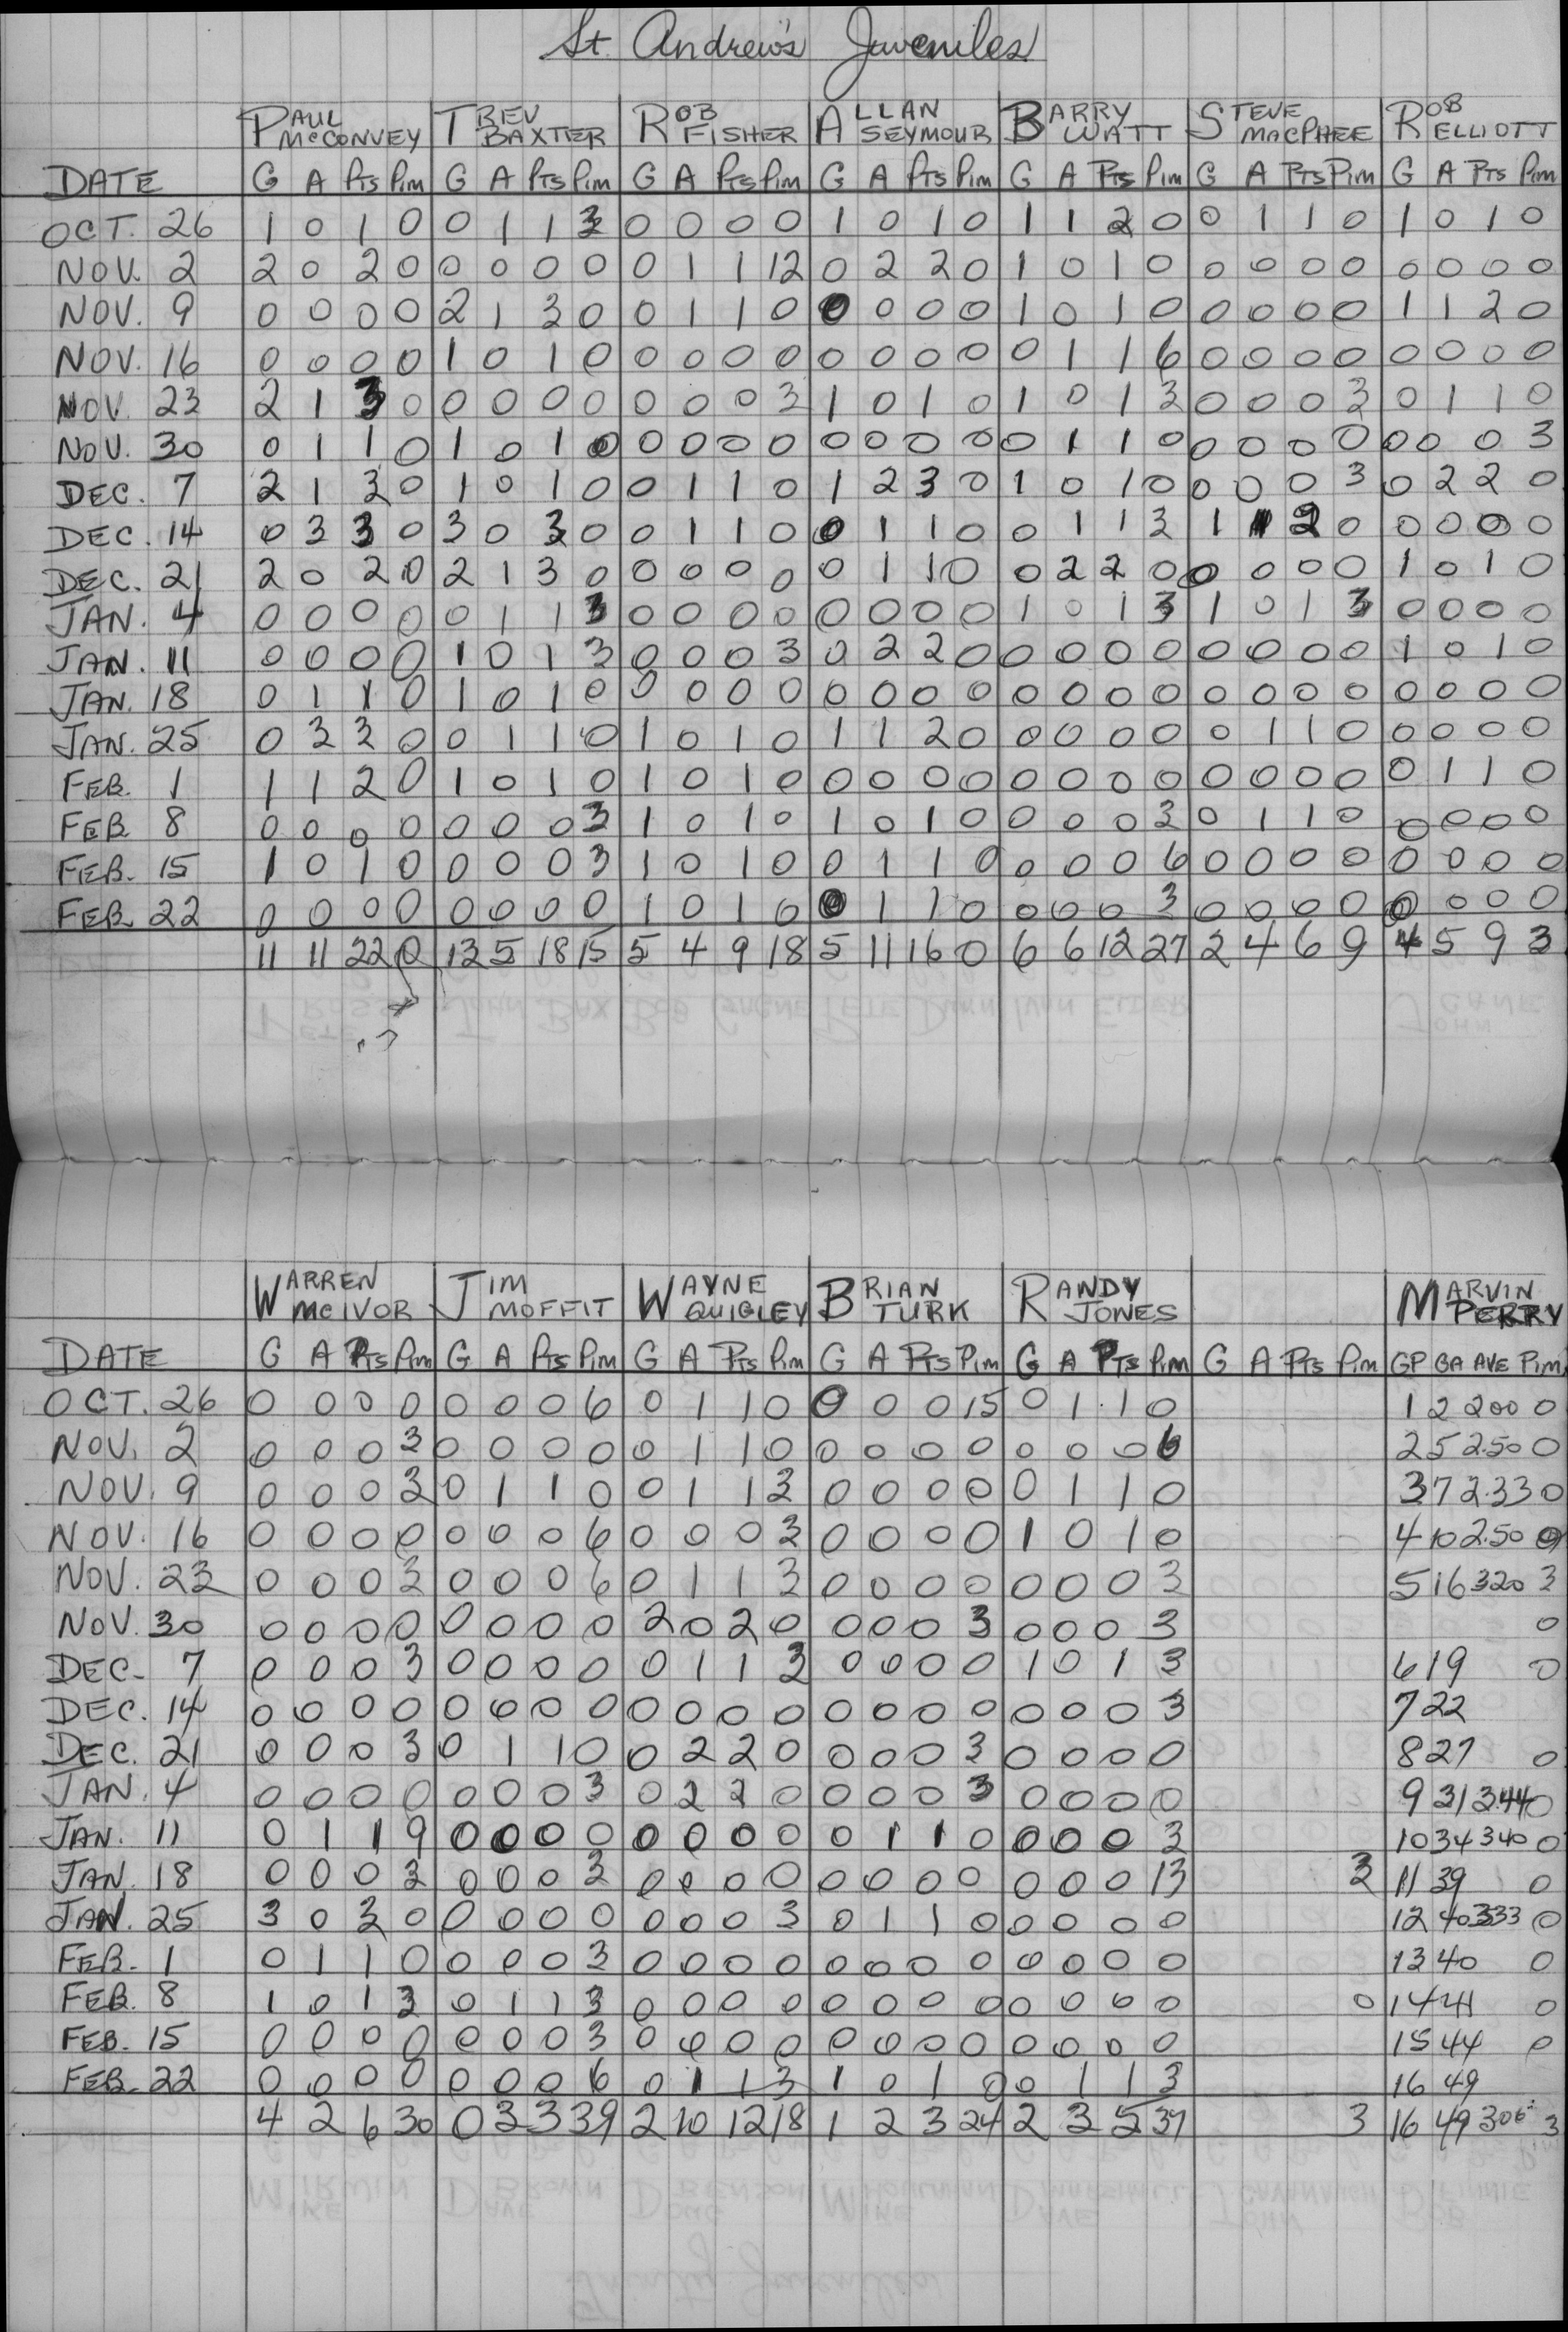 St. Andrew's Juveniles
PAUL McCONVEY TREV BAXTER ROB FISHER ALLAN SEYMOUR BARRY WATT STEVE MACPHEE ROB ELLIOTT
DATE G A Pts Pim G A Pts Pim G A Pts Pim G A Pts Pim G A Pts Pim G A Pts Pim G A Pts Pim
OCT. 26 1 0 1 0 0 1 1 3 0 0 0 0 1 0 1 0 1 1 2 0 0 1 1 0 1 0 1 0
NOV. 2 2 0 2 0 0 0 0 0 0 1 1 12 0 2 2 0 1 0 1 0 0 0 0 0 0 0 0 0
NOV. 9 0 0 0 0 2 1 3 0 0 1 1 0 0 0 0 0 1 0 1 0 0 0 0 0 1 1 2 0
NOV. 16 0 0 0 0 1 0 1 0 0 0 0 0 0 0 0 0 0 1 1 6 0 0 0 0 0 0 0 0
NOV. 23 2 1 3 0 0 0 0 0 0 0 0 3 1 0 1 0 1 0 1 3 0 0 0 3 0 1 1 0
NOV. 30 0 1 1 0 1 0 1 0 0 0 0 0 0 0 0 0 0 1 1 0 0 0 0 0 0 0 0 3
DEC. 7 2 1 3 0 1 0 1 0 0 1 1 0 1 2 3 0 1 0 1 0 0 0 0 3 0 2 2 0
DEC. 14 0 3 3 0 3 0 3 0 0 1 1 0 0 1 1 0 0 1 1 3 1 1 2 0 0 0 0 0
DEC. 21 2 0 2 0 2 1 3 0 0 0 0 0 0 1 1 0 0 2 2 0 0 0 0 0 1 0 1 0
JAN. 4 0 0 0 0 0 1 1 3 0 0 0 0 0 0 0 0 1 0 1 3 1 0 1 3 0 0 0 0
JAN. 11 0 0 0 0 1 0 1 3 0 0 0 3 0 2 2 0 0 0 0 0 0 0 0 0 1 0 1 0
JAN. 18 0 1 1 0 1 0 1 0 0 0 0 0 0 0 0 0 0 0 0 0 0 0 0 0 0 0 0 0
JAN. 25 0 3 3 0 0 1 1 0 1 0 1 0 1 1 2 0 0 0 0 0 0 1 1 0 0 0 0 0
FEB. 1 1 1 2 0 1 0 1 0 1 0 1 0 0 0 0 0 0 0 0 0 0 0 0 0 0 1 1 0
FEB 8 0 0 0 0 0 0 0 3 1 0 1 0 1 0 1 0 0 0 0 3 0 1 1 0 0 0 0 0
FEB. 15 1 0 1 0 0 0 0 3 1 0 1 0 0 1 1 0 0 0 0 6 0 0 0 0 0 0 0 0
FEB. 22 0 0 0 0 0 0 0 0 1 0 1 0 0 1 1 0 0 0 0 3 0 0 0 0 0 0 0 0
11 11 22 0 13 5 18 15 5 4 9 18 5 11 16 0 6 6 12 27 2 4 6 9 4 5 9 3
WARREN McIVOR JIM MOFFIT WAYNE QUIGLEY BRIAN TURK RANDY JONES MARVIN PERRY
DATE G A Pts Pim G A Pts Pim G A Pts Pim G A Pts Pim G A Pts Pim G A Pts Pim GP GA AVE Pim
OCT. 26 0 0 0 0 0 0 0 6 0 1 1 0 0 0 0 15 0 1 1 0 1 2 2.00 0
NOV. 2 0 0 0 3 0 0 0 0 0 1 1 0 0 0 0 0 0 0 0 6 2 5 2.50 0
NOV. 9 0 0 0 3 0 1 1 0 0 1 1 3 0 0 0 0 0 1 1 0 3 7 2.33 0
NOV. 16 0 0 0 0 0 0 0 6 0 0 0 3 0 0 0 0 1 0 1 0 4 10 2.50 0
NOV. 23 0 0 0 3 0 0 0 6 0 1 1 3 0 0 0 0 0 0 0 3 5 16 3.20 3
NOV. 30 0 0 0 0 0 0 0 0 2 0 2 0 0 0 0 3 0 0 0 3 0
DEC. 7 0 0 0 3 0 0 0 0 0 1 1 3 0 0 0 0 1 0 1 3 6 19 0
DEC. 14 0 0 0 0 0 0 0 0 0 0 0 0 0 0 0 0 0 0 0 3 7 22
DEC. 21 0 0 0 3 0 1 1 0 0 2 2 0 0 0 0 3 0 0 0 0 8 27 0
JAN. 4 0 0 0 0 0 0 0 3 0 2 2 0 0 0 0 3 0 0 0 0 9 31 3.44 0
JAN. 11 0 1 1 9 0 0 0 0 0 0 0 0 0 1 1 0 0 0 0 3 10 34 3.40 0
JAN. 18 0 0 0 3 0 0 0 3 0 0 0 0 0 0 0 0 0 0 0 13 3 11 39 0
JAN. 25 3 0 3 0 0 0 0 0 0 0 0 3 0 1 1 0 0 0 0 0 12 40 3.33 0
FEB. 1 0 1 1 0 0 0 0 3 0 0 0 0 0 0 0 0 0 0 0 0 13 40 0
FEB. 8 1 0 1 3 0 1 1 3 0 0 0 0 0 0 0 0 0 0 0 0 0 14 41 0
FEB. 15 0 0 0 0 0 0 0 3 0 0 0 0 0 0 0 0 0 0 0 0 15 44 0
FEB. 22 0 0 0 0 0 0 0 6 0 1 1 3 1 0 1 0 0 1 1 3 16 49
4 2 6 30 0 3 3 39 2 10 12 18 1 2 3 24 2 3 5 37 3 16 49 3.06 3